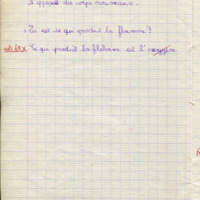 il apparaît des corps nouveaux.
Qu'est ce qui produit la flamme ?
Ce qui produit la flamme est l'oxygène